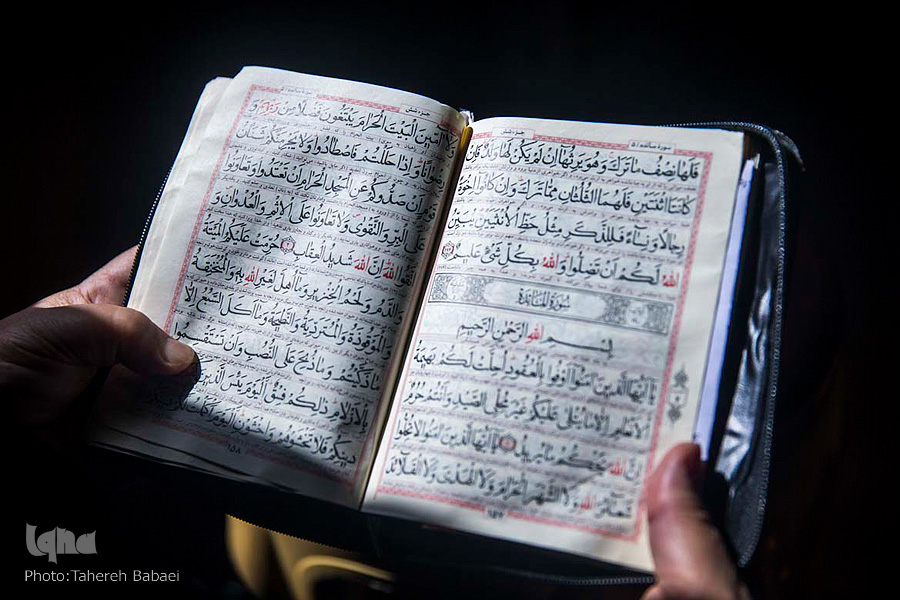 سورة مائده ٥
جزء شش
فَلَهَا نِصْفُ مَا تَرَكَ وَهُوَ يَرِثُهَا اِنْ لَمْ يَكُنْ لَهَا وَلَدٌ فَاِنْ
كَانَتَا اثْنَتَيْنِ فَلَهُمَا الثُّلُثَانِ مِمَّا تَرَكَ وَاِنْ كَانُوا اِخْوَةً
رِجَالًا وَنِسَاءً فَلِلذَّكَرِ مِثْلُ حَظِّ الْاُنْثَيَيْنِ يُبَيِّنُ
اللهُ لَكُمْ اَنْ تَضِلُّوا وَاللهُ بِكُلِّ شَىْءٍ عَلِيمٌ
سُورَةُ الْمَائِدَة
بِسْمِ اللهِ الرَّحْمٰنِ الرَّحِيمِ
يَا اَيُّهَا الَّذِينَ اٰمَنُوا اَوْفُوا بِالْعُقُودِ اُحِلَّتْ لَكُمْ بَهِيمَةُ
الْاَنْعَامِ اِلَّا مَا يُتْلٰى عَلَيْكُمْ غَيْرَ مُحِلِّى الصَّيْدِ وَاَنْتُمْ حُرُمٌ
اِنَّ اللهَ يَحْكُمُ مَا يُرِيدُ ١ يَا اَيُّهَا الَّذِينَ اٰمَنُوا لَا تُحِلُّوا
شَعَائِرَ اللهِ وَلَا الشَّهْرَ الْحَرَامَ وَلَا الْهَدْىَ وَلَا الْقَلَائِدَ
جزء شش
وَلَا اٰمِّينَ الْبَيْتَ الْحَرَامَ يَبْتَغُونَ فَضْلًا مِنْ رَبِّهِمْ وَ
رِضْوَانًا وَاِذَا حَلَلْتُمْ فَاصْطَادُوا وَلَا يَجْرِمَنَّكُمْ شَنَاٰنُ
قَوْمٍ اَنْ صَدُّوكُمْ عَنِ الْمَسْجِدِ الْحَرَامِ اَنْ تَعْتَدُوا وَتَعَاوَنُوا
عَلَى الْبِرِّ وَالتَّقْوٰى وَلَا تَعَاوَنُوا عَلَى الْاِثْمِ وَالْعُدْوَانِ وَ
اتَّقُوا اللهَ اِنَّ اللهَ شَدِيدُ الْعِقَابِ ٢ حُرِّمَتْ عَلَيْكُمُ الْمَيْتَةُ
وَالدَّمُ وَلَحْمُ الْخِنْزِيرِ وَمَا اُهِلَّ لِغَيْرِ اللهِ بِهِ وَالْمُنْخَنِقَةُ
وَالْمَوْقُوذَةُ وَالْمُتَرَدِّيَةُ وَالنَّطِيحَةُ وَمَا اَكَلَ السَّبُعُ اِلَّا
مَا ذَكَّيْتُمْ وَمَا ذُبِحَ عَلَى النُّصُبِ وَاَنْ تَسْتَقْسِمُوا
بِالْاَزْلَامِ ذٰلِكُمْ فِسْقٌ اَلْيَوْمَ يَئِسَ الَّذِينَ
دِينِكُمْ فَلَا تَخْشَوْهُمْ وَاخْشَوْنِ اَلْيَوْمَ
iqna
Photo:Tahereh Babaei